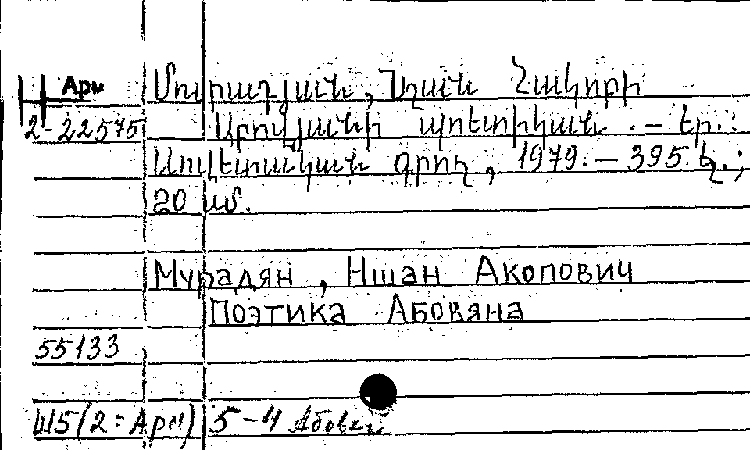 Арм Մուրադյան, Նշան Հակոբի
2-22575 Աբովյանի պոետիկան. – Եր.:
Սովետական գրող, 1979. – 395 էջ.;
20 սմ.
Мурадян, Ншан Акопович
Поэтика Абовяна
55133
Ш5(2=Арм)5-4 Абовян